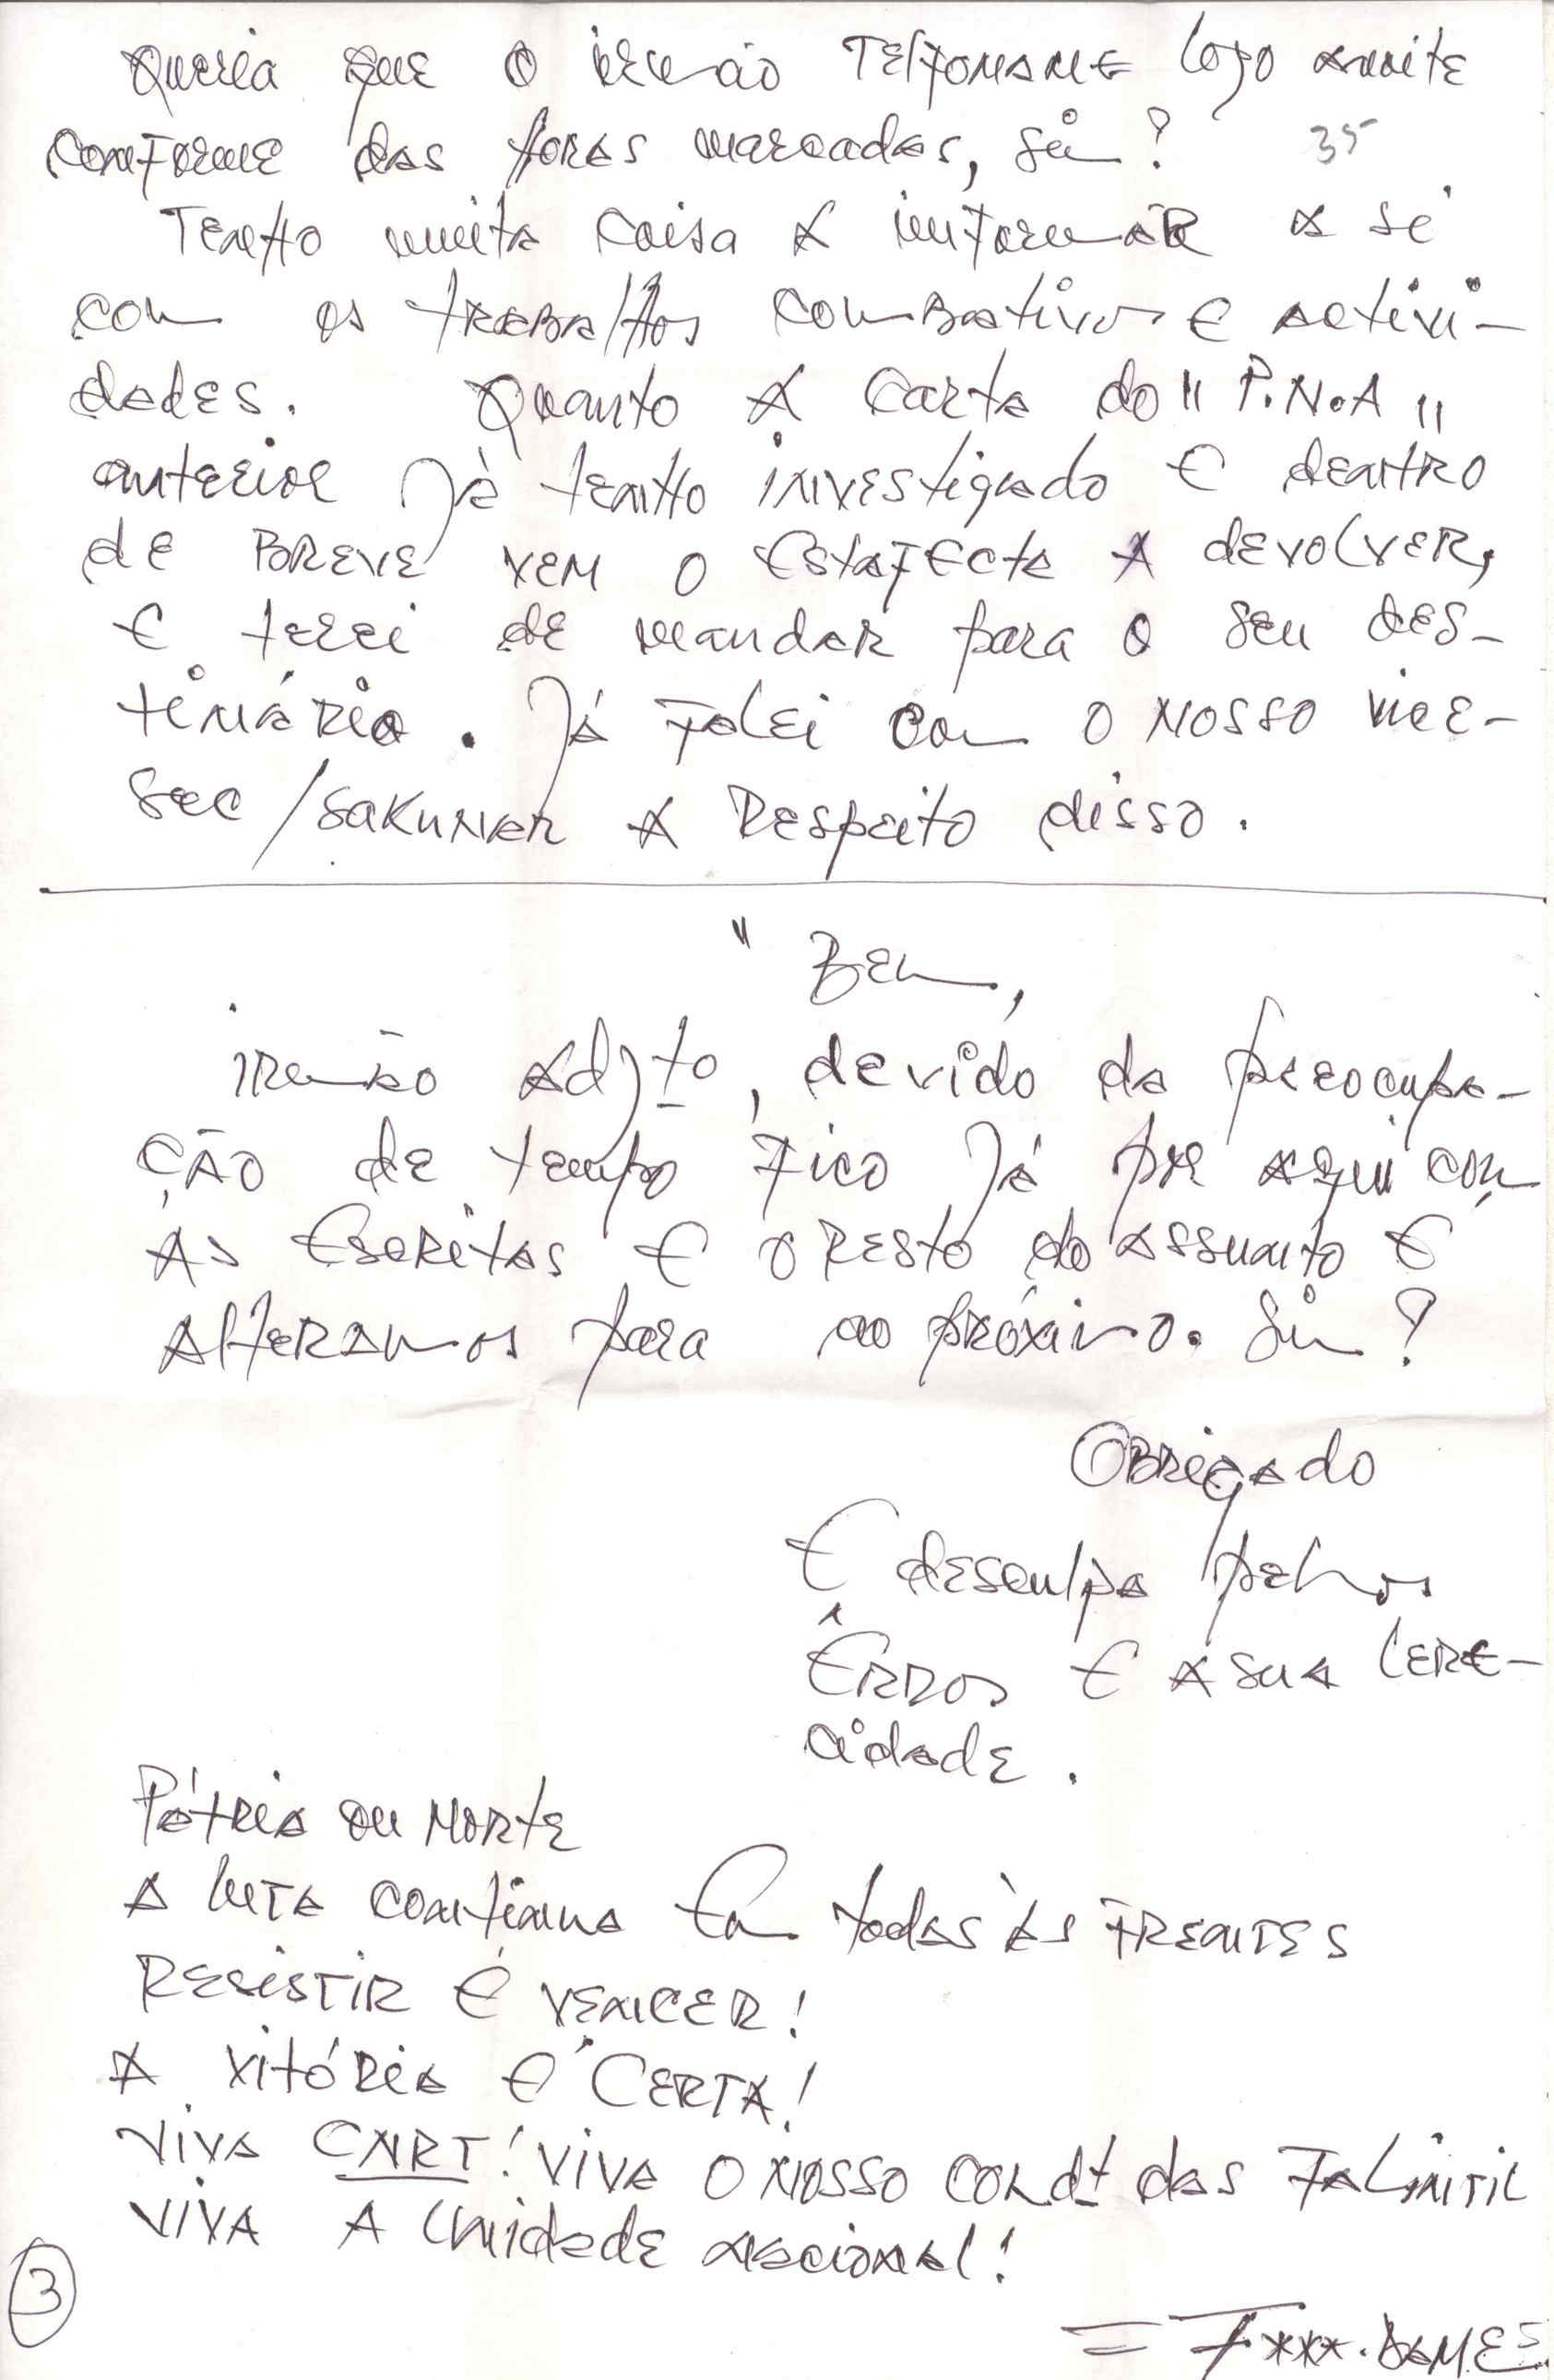 Queria que o irmão Telfonane logo anoite
conforme das horas marcadas, Sim? 35
Tenho muita coisa a informar a sí
com os trabalhos combativos e activi-
dades. Quanto A carta do "P.N.A"
anterior Já tenho investigado e dentro
de BREVE VEM o Estafecta A devolver,
e terei de mandar para o seu des-
tinário. Já Falei com o NOSSO vice-
Sec/SAKUNAR A Respeito disso.
" Bem,
irmão Adjto, devido da preocupa-
ção de tempo Fico Já por aqui com
As Escritas e o Resto do assunto é
Alteramos para ao próximo. Sim?
Obrigado
E desculpa pelos
Êrros e A sua lere-
cidade.
Pátria ou Morte
A luta continua Em todas às Frentes
Resistir é Vencer!
A Vitória é Certa!
Viva CNRT! Viva o nosso Comdt das Falintil
Viva A Unidade nacional!
3
= F***. DAMES